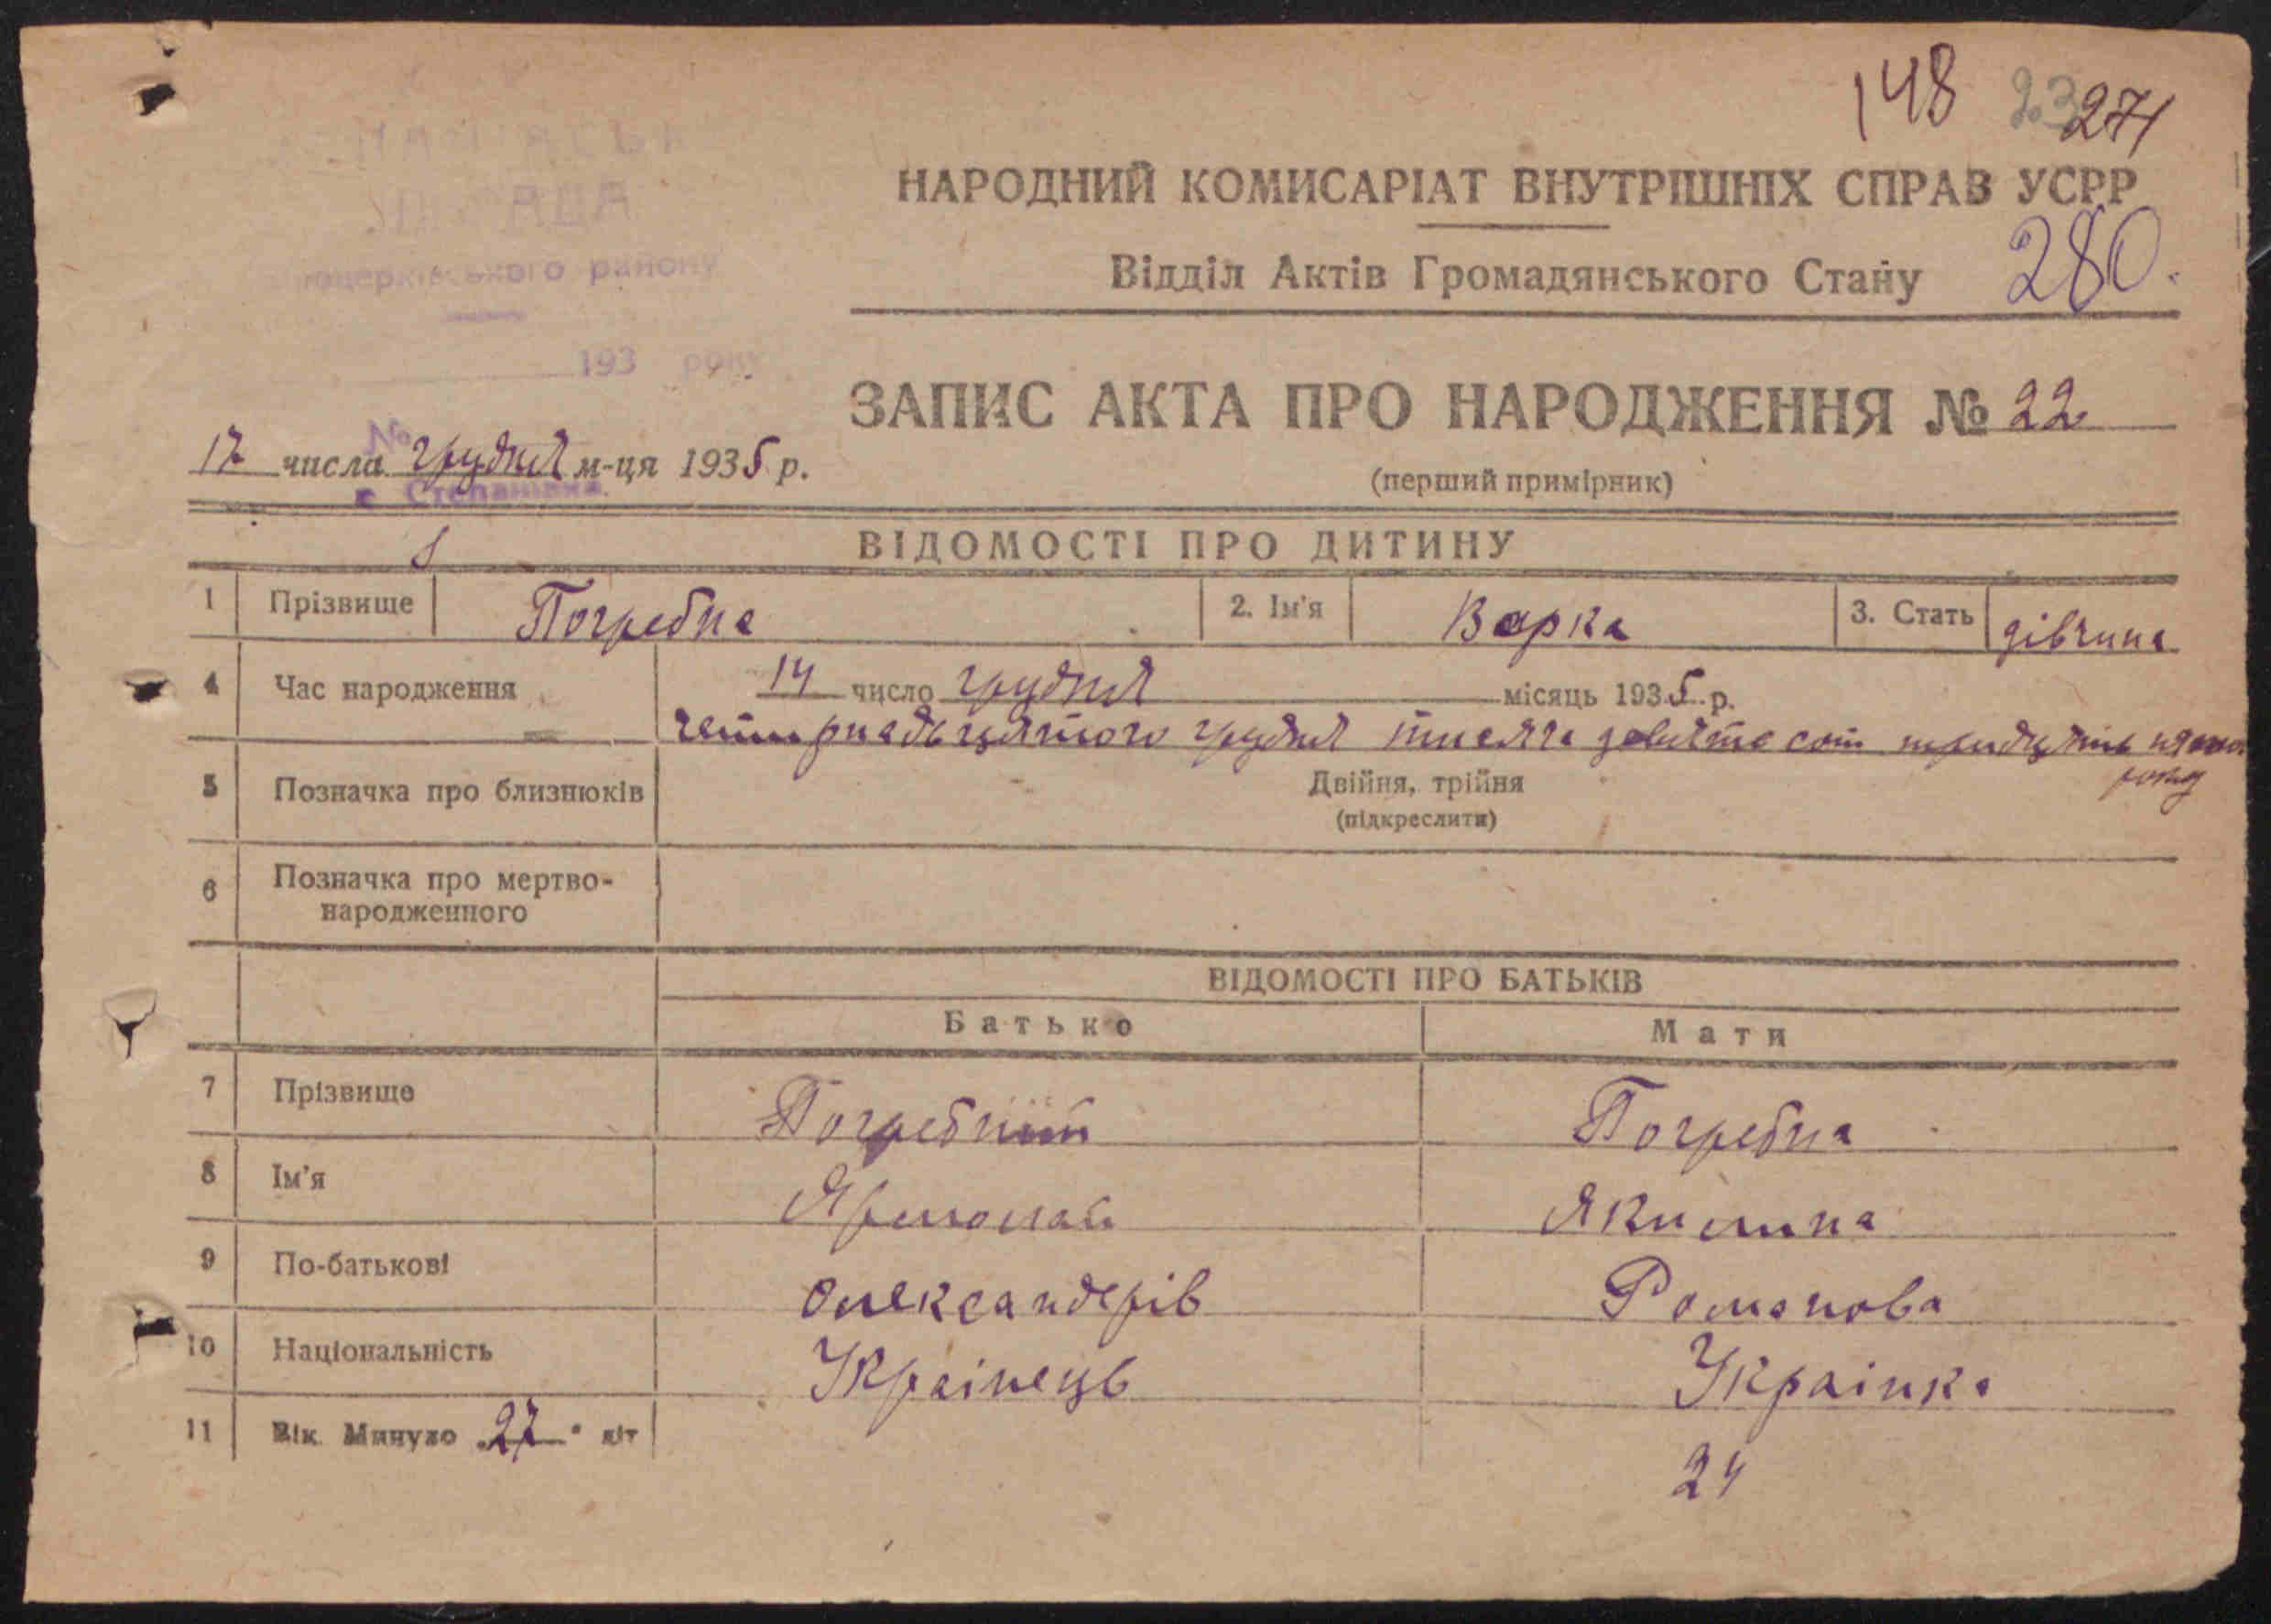 148 23 271
НАРОДНИЙ КОМИСАРІАТ ВНУТРІШНІХ СПРАВ УСРР
Відділ Актів Громадянського Стану 280.
193 року
ЗАПИС АКТА ПРО НАРОДЖЕННЯ № 22
№
17 числа грудня м-ця 1935 р.
(перший примірник)
ВІДОМОСТІ ПРО ДИТИНУ
1 Прізвище Погребна 2. Ім'я Варка 3. Стать дівчина
4 Час народження 14 число грудня місяць 1935 р.
четирнадьцятого грудня тисяча девятсо сот тридцять пятого
року
5 Позначка про близнюків Двійня, трійня
(підкреслити)
6 Позначка про мертво-
народженного
ВІДОМОСТІ ПРО БАТЬКІВ
Батько Мати
7 Прізвище Погребний Погребна
8 Ім'я Ярмолай Якилина
9 По-батькові Олександерів Романова
10 Національність Українець Українка
11 Вік. Минуло "27" літ
24